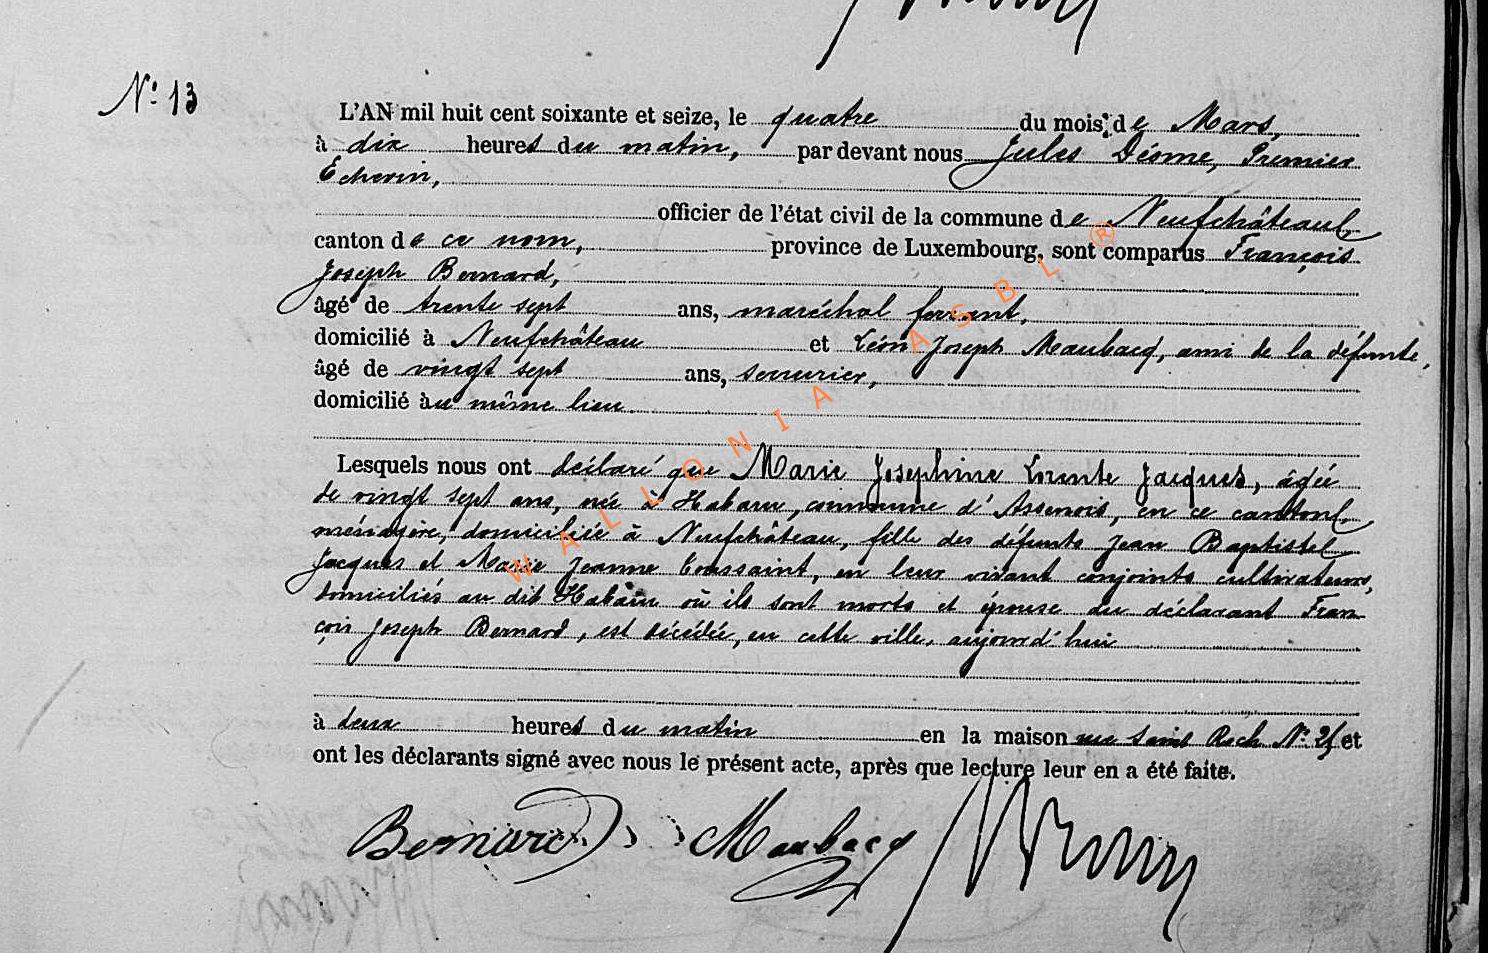 N° 13
L'AN mil huit cent soixante et seize, le quatre du mois de Mars,
à dix heures du matin, par devant nous Jules Désme, Premier
Echevin,
officier de l'état civil de la commune de Neufchâteau
canton de ce nom, province de Luxembourg, sont comparus François
Joseph Bernard,
âgé de trente sept ans, maréchal ferrant,
domicilié à Neufchâteau et Léon Joseph Maubacq, ami de la défunte,
âgé de vingt sept ans, serrurier,
domicilié au même lieu
Lesquels nous ont déclaré que Marie Joséphine Jacques, âgée
de vingt sept ans, née à Habaru, commune d'Assenois, en ce canton
ménagère, domiciliée à Neufchâteau, fille des défunts Jean Baptiste
Jacques et Marie Jeanne Toussaint, en leur vivant conjoints cultivateurs,
domiciliés au dit Habaru où ils sont morts et épouse du déclarant Fran
çois Joseph Bernard, est décédée, en cette ville, aujourd'hui
à deux heures du matin en la maison rue Saint Roch N° et
ont les déclarants signé avec nous le présent acte, après que lecture leur en a été faite.
Bernard Maubacq
WALLONIA ASBL ®